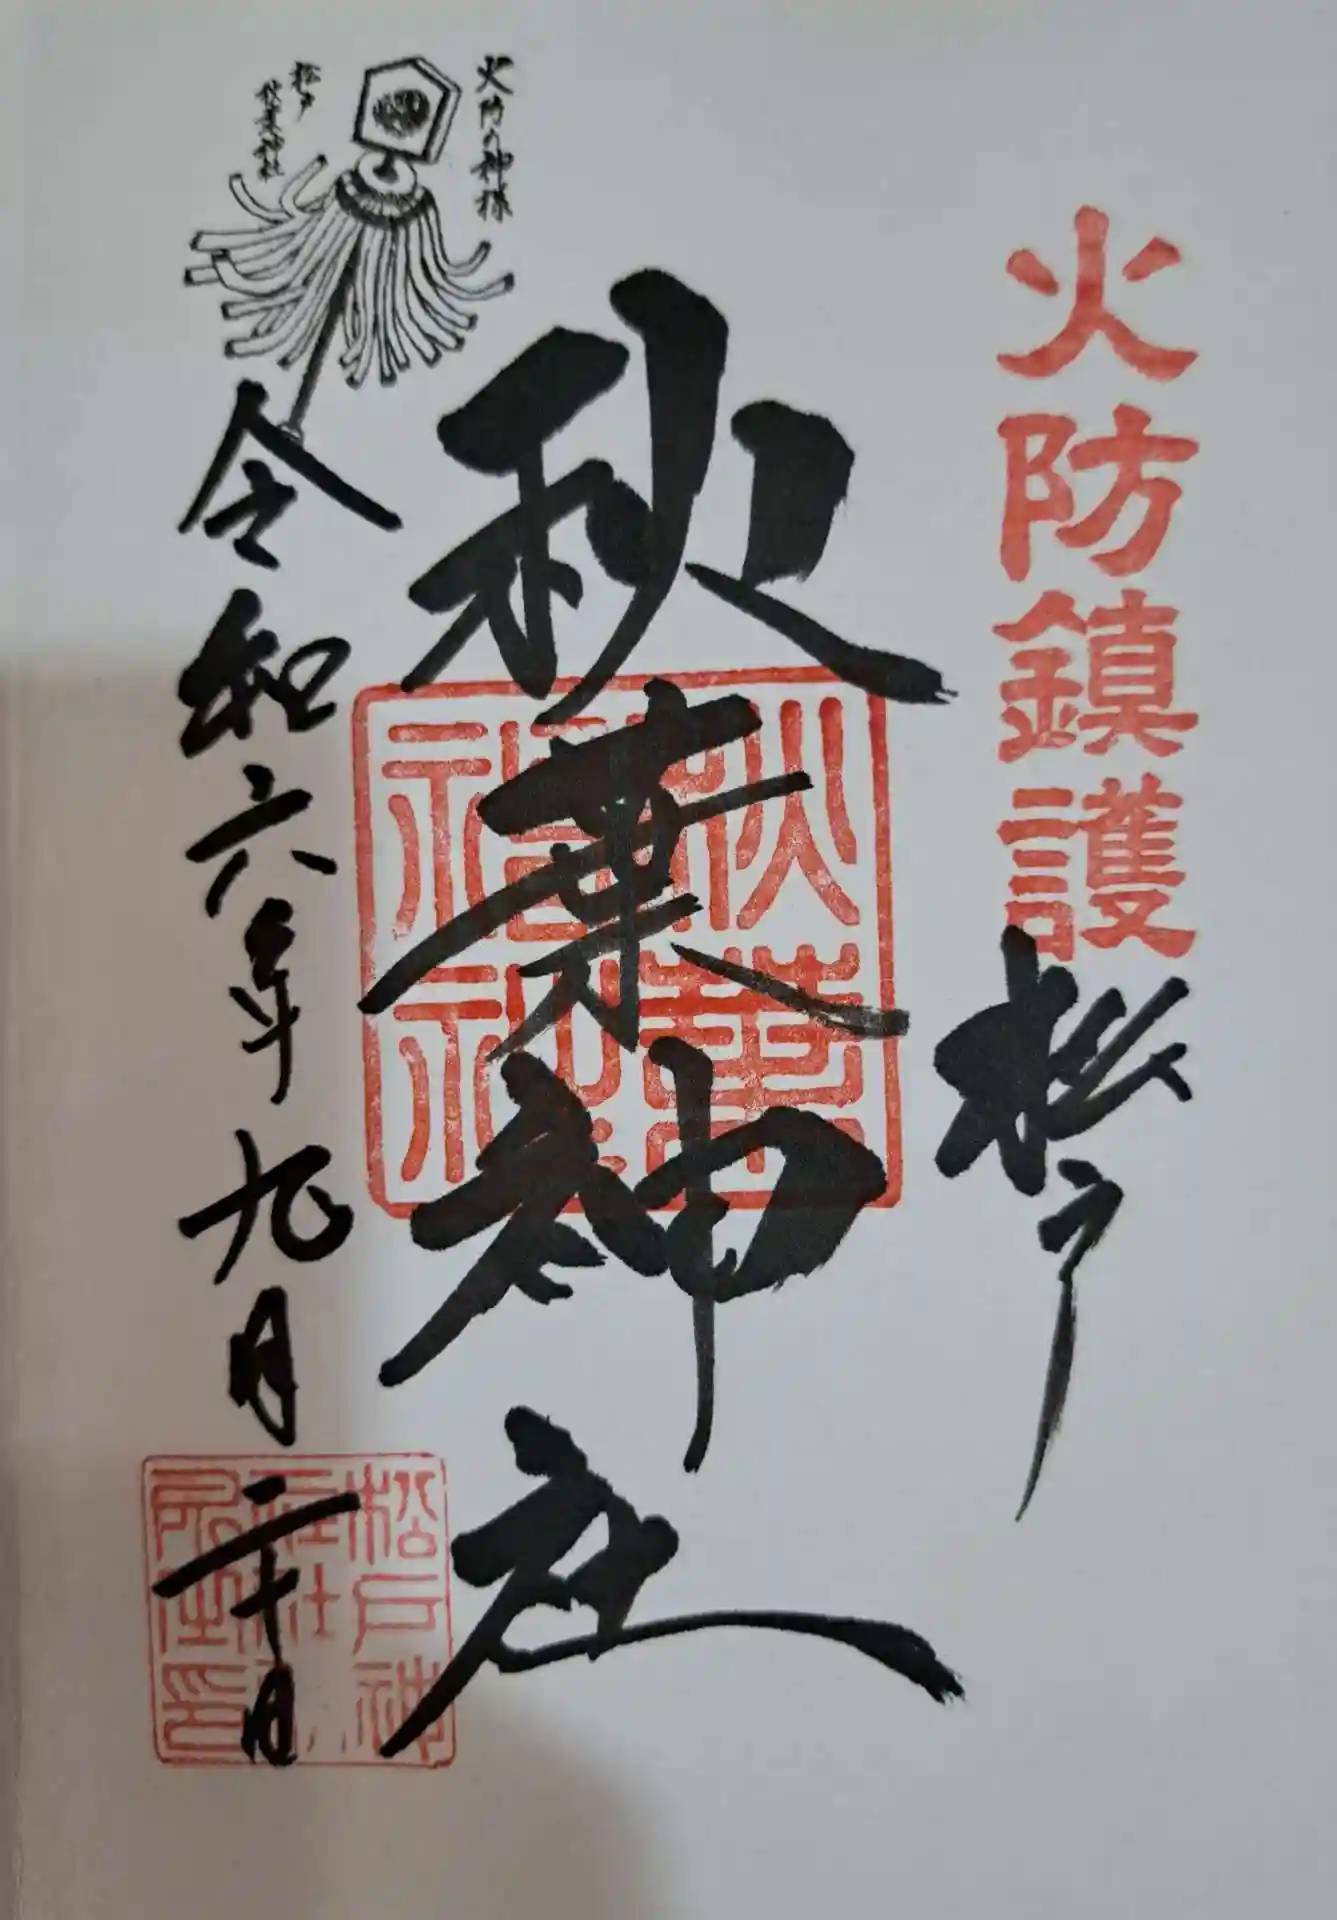 火防鎮護
松戸
秋葉神社
秋葉神社
火防の神様
松戸
秋葉神社
令和六年九月二十日
松戸神
社社
之印